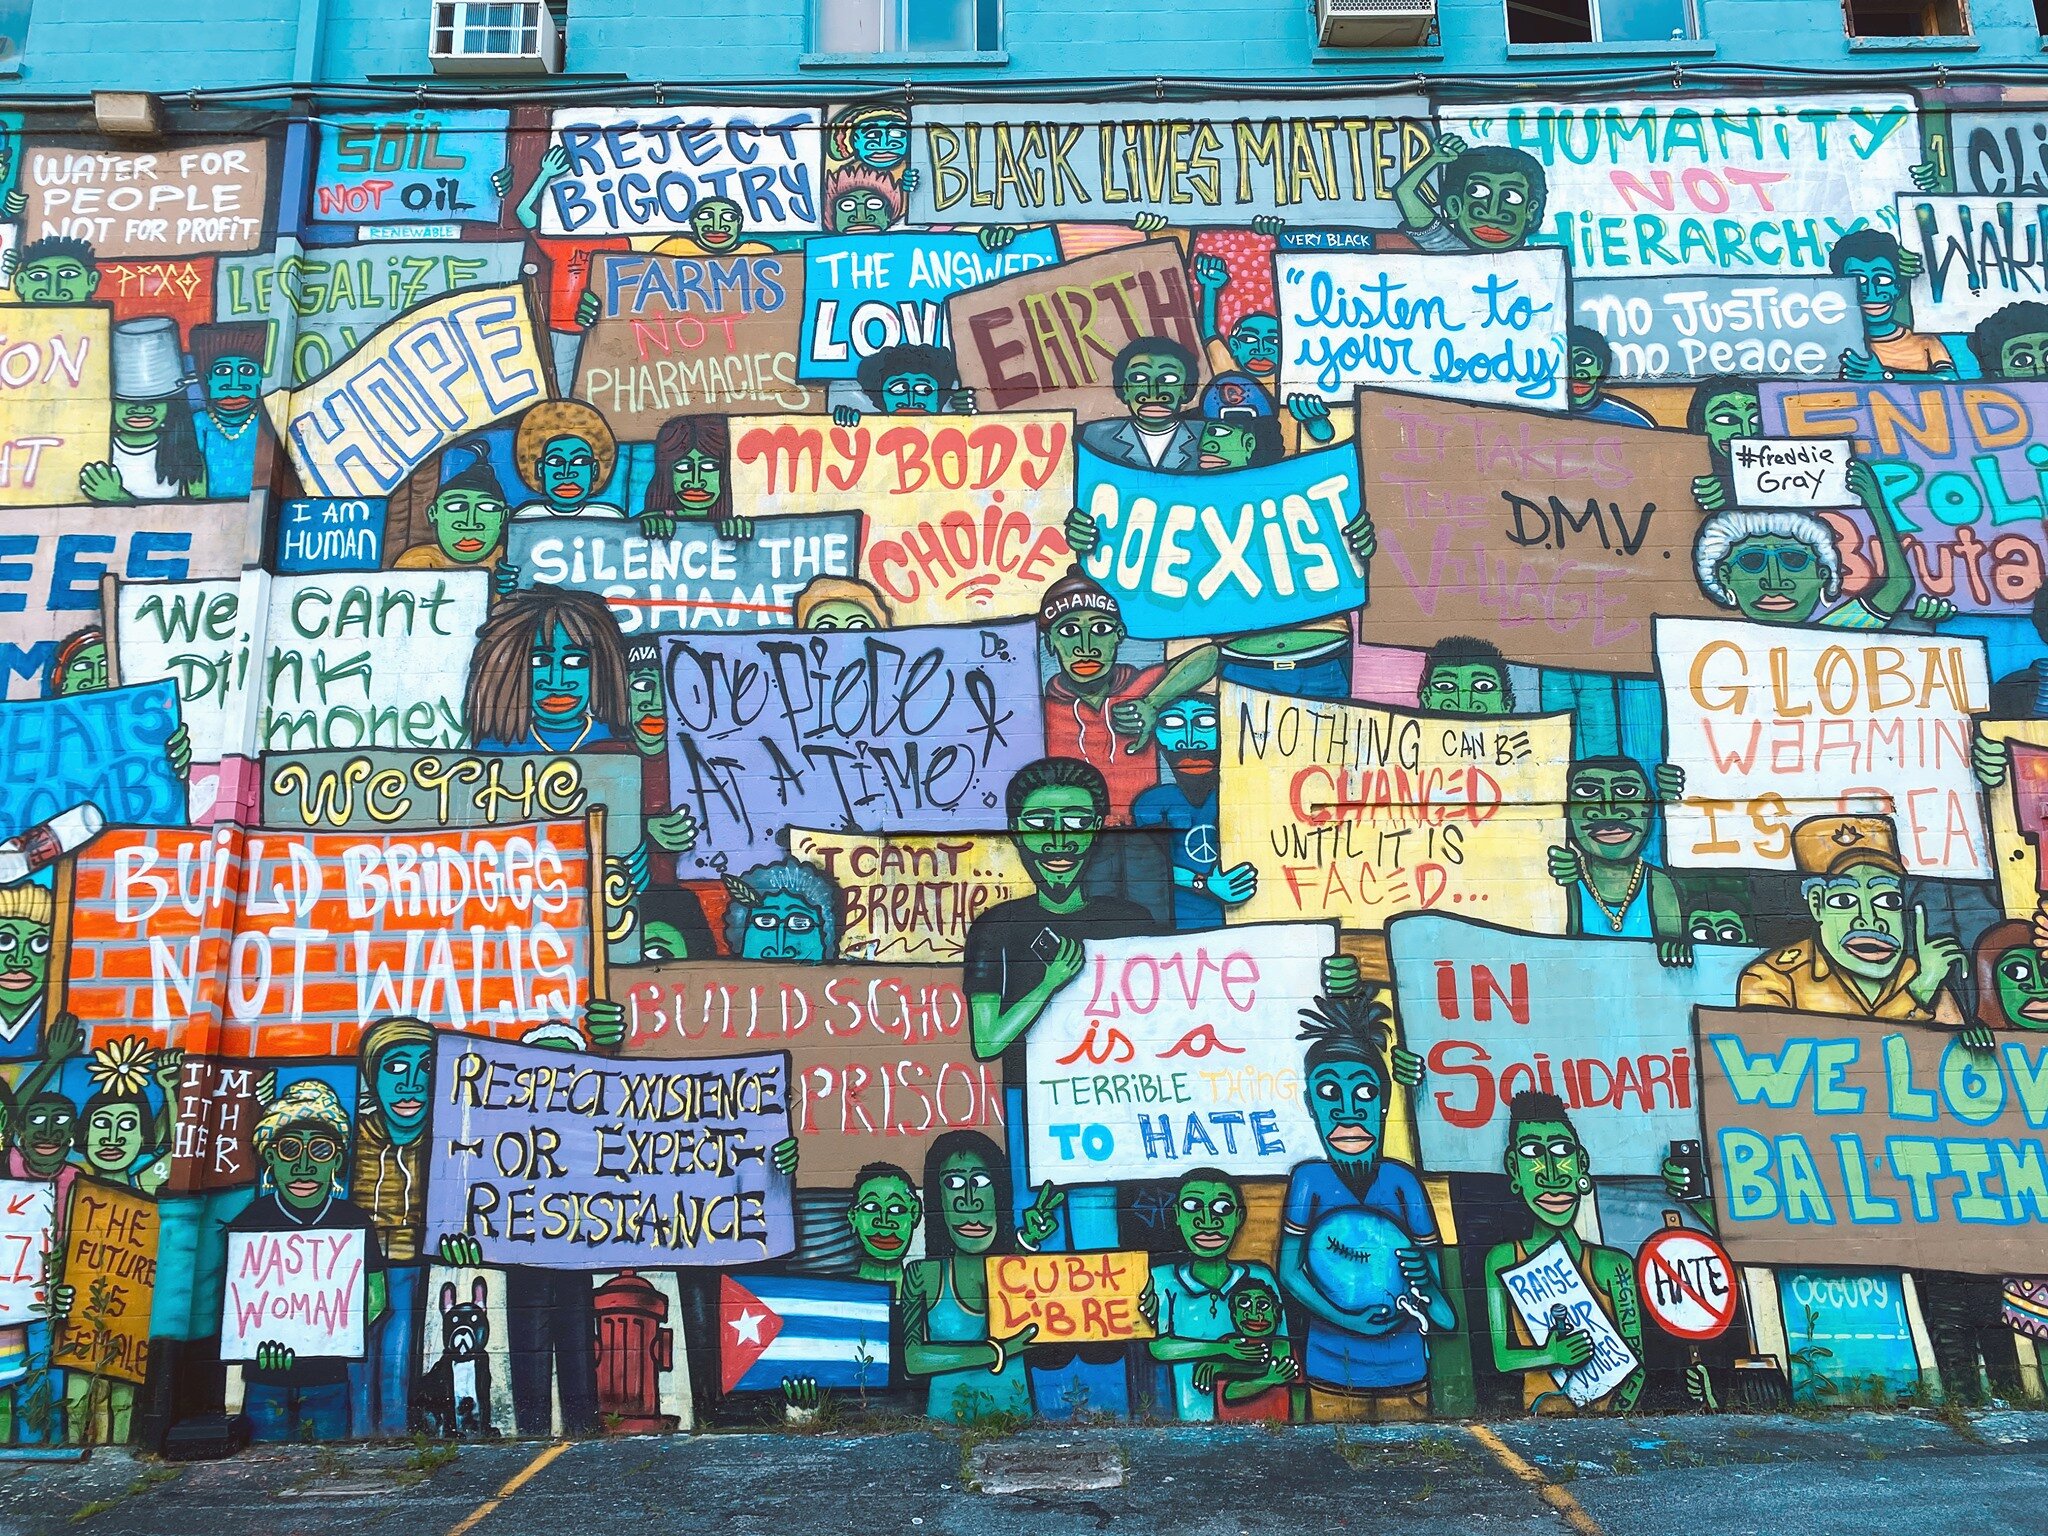 WATER FOR
PEOPLE
NOT FOR PROFIT
SOIL
NOT OIL
RENEWABLE
REJECT
BIGOTRY
BLACK LIVES MATTER
"HUMANITY
NOT
HIERARCHY"
CLI
WAK
PIXO
LEGALIZE
HOPE
FARMS
NOT
PHARMACIES
THE ANSWER:
LOV
EARTH
VERY BLACK
"listen to
your body"
NO JUSTICE
NO PEACE
ON
HT
I AM
HUMAN
SILENCE THE
SHAME
MY BODY
CHOICE
COEXIST
CHANGE
IT TAKES
THE D.M.V.
VILLAGE
#freddie
Gray
END
POLI
Bruta
EES
M
We cant
Drink
money
EATS
BOMBS
WETHE
One Piece
AT A TIME
NOTHING CAN BE
CHANGED
UNTIL IT IS
FACED...
GLOBAL
WARMIN
IS REA
BUILD BRIDGES
NOT WALLS
"I CAN'T...
BREATHE"
BUILD SCHO
PRISON
LOVE
is a
TERRIBLE THING
TO HATE
IN
SOLIDARI
WE LOV
BALTIM
I'M
HER
RESPECT XXISTENCE
-OR EXPECT-
RESISTANCE
THE
FUTURE
IS
FEMALE
NASTY
WOMAN
CUBA
LIBRE
RAISE
YOUR
VOICES
HATE
OCCUPY